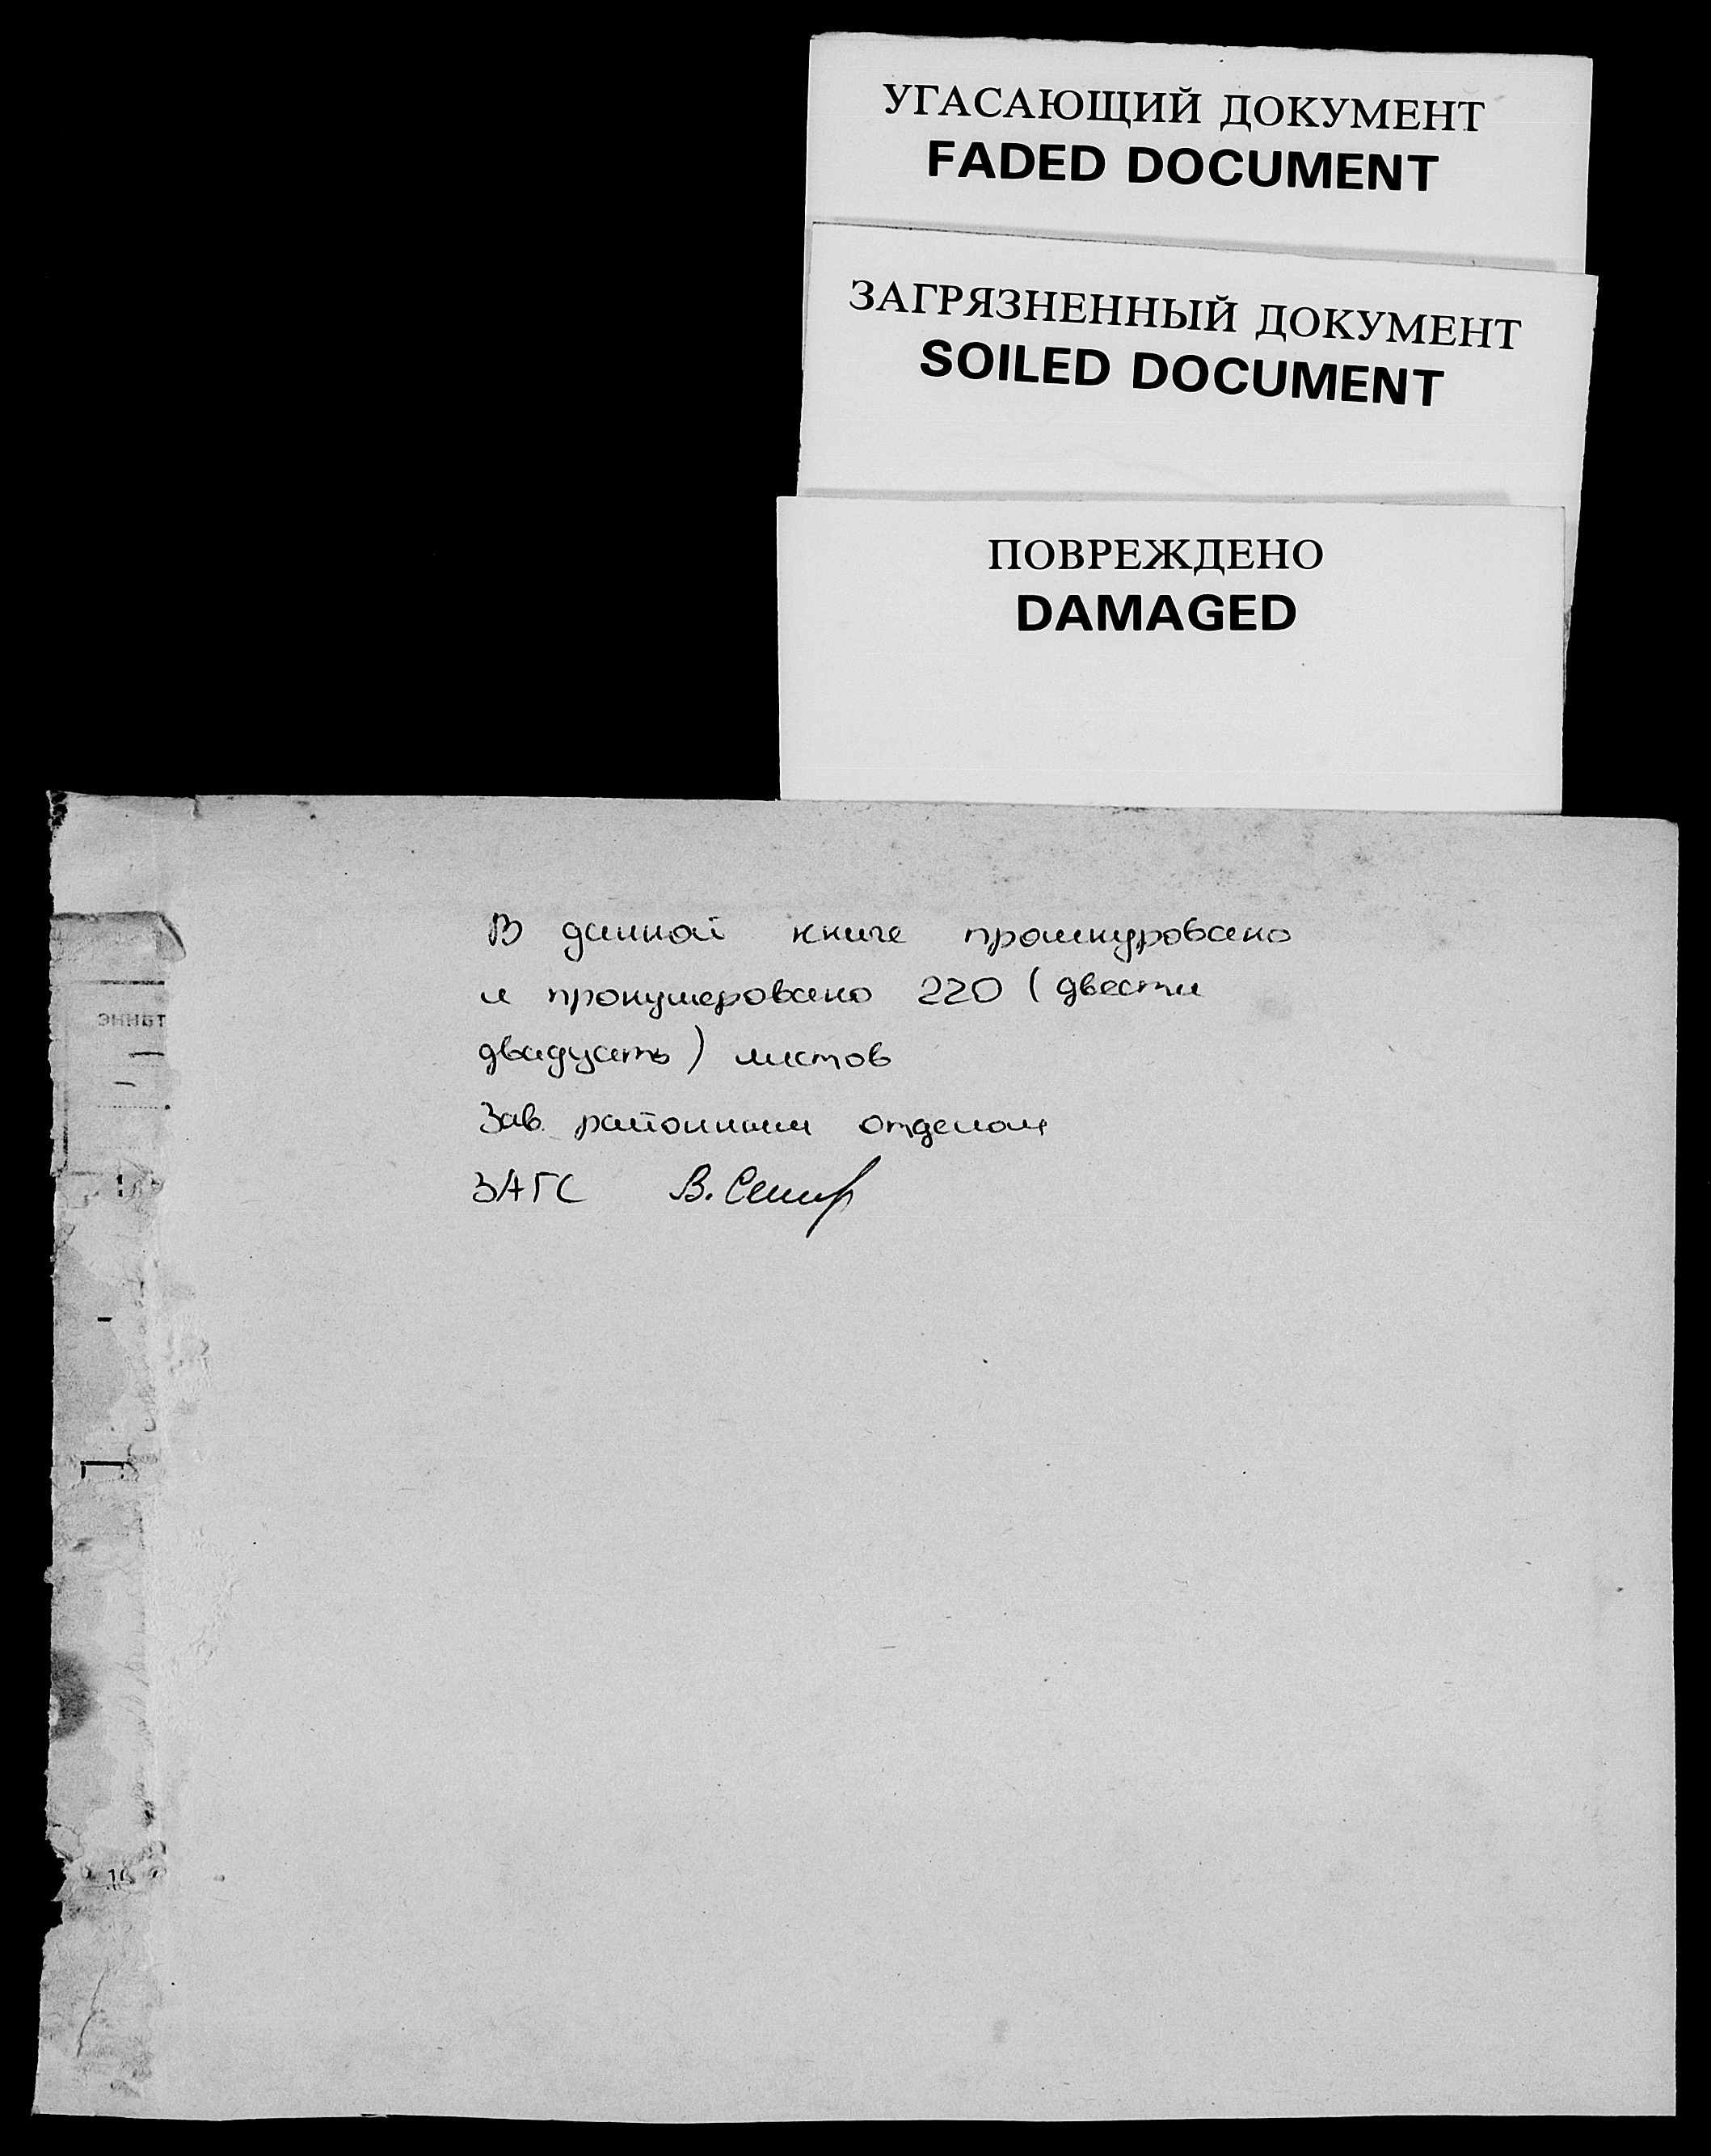 УГАСАЮЩИЙ ДОКУМЕНТ
FADED DOCUMENT
ЗАГРЯЗНЕННЫЙ ДОКУМЕНТ
SOILED DOCUMENT
ПОВРЕЖДЕНО
DAMAGED
В данной книге прошнуровано
и пронумеровано 220 (двести
двадцать) листов
Зав. районным отделом
ЗАГС В.